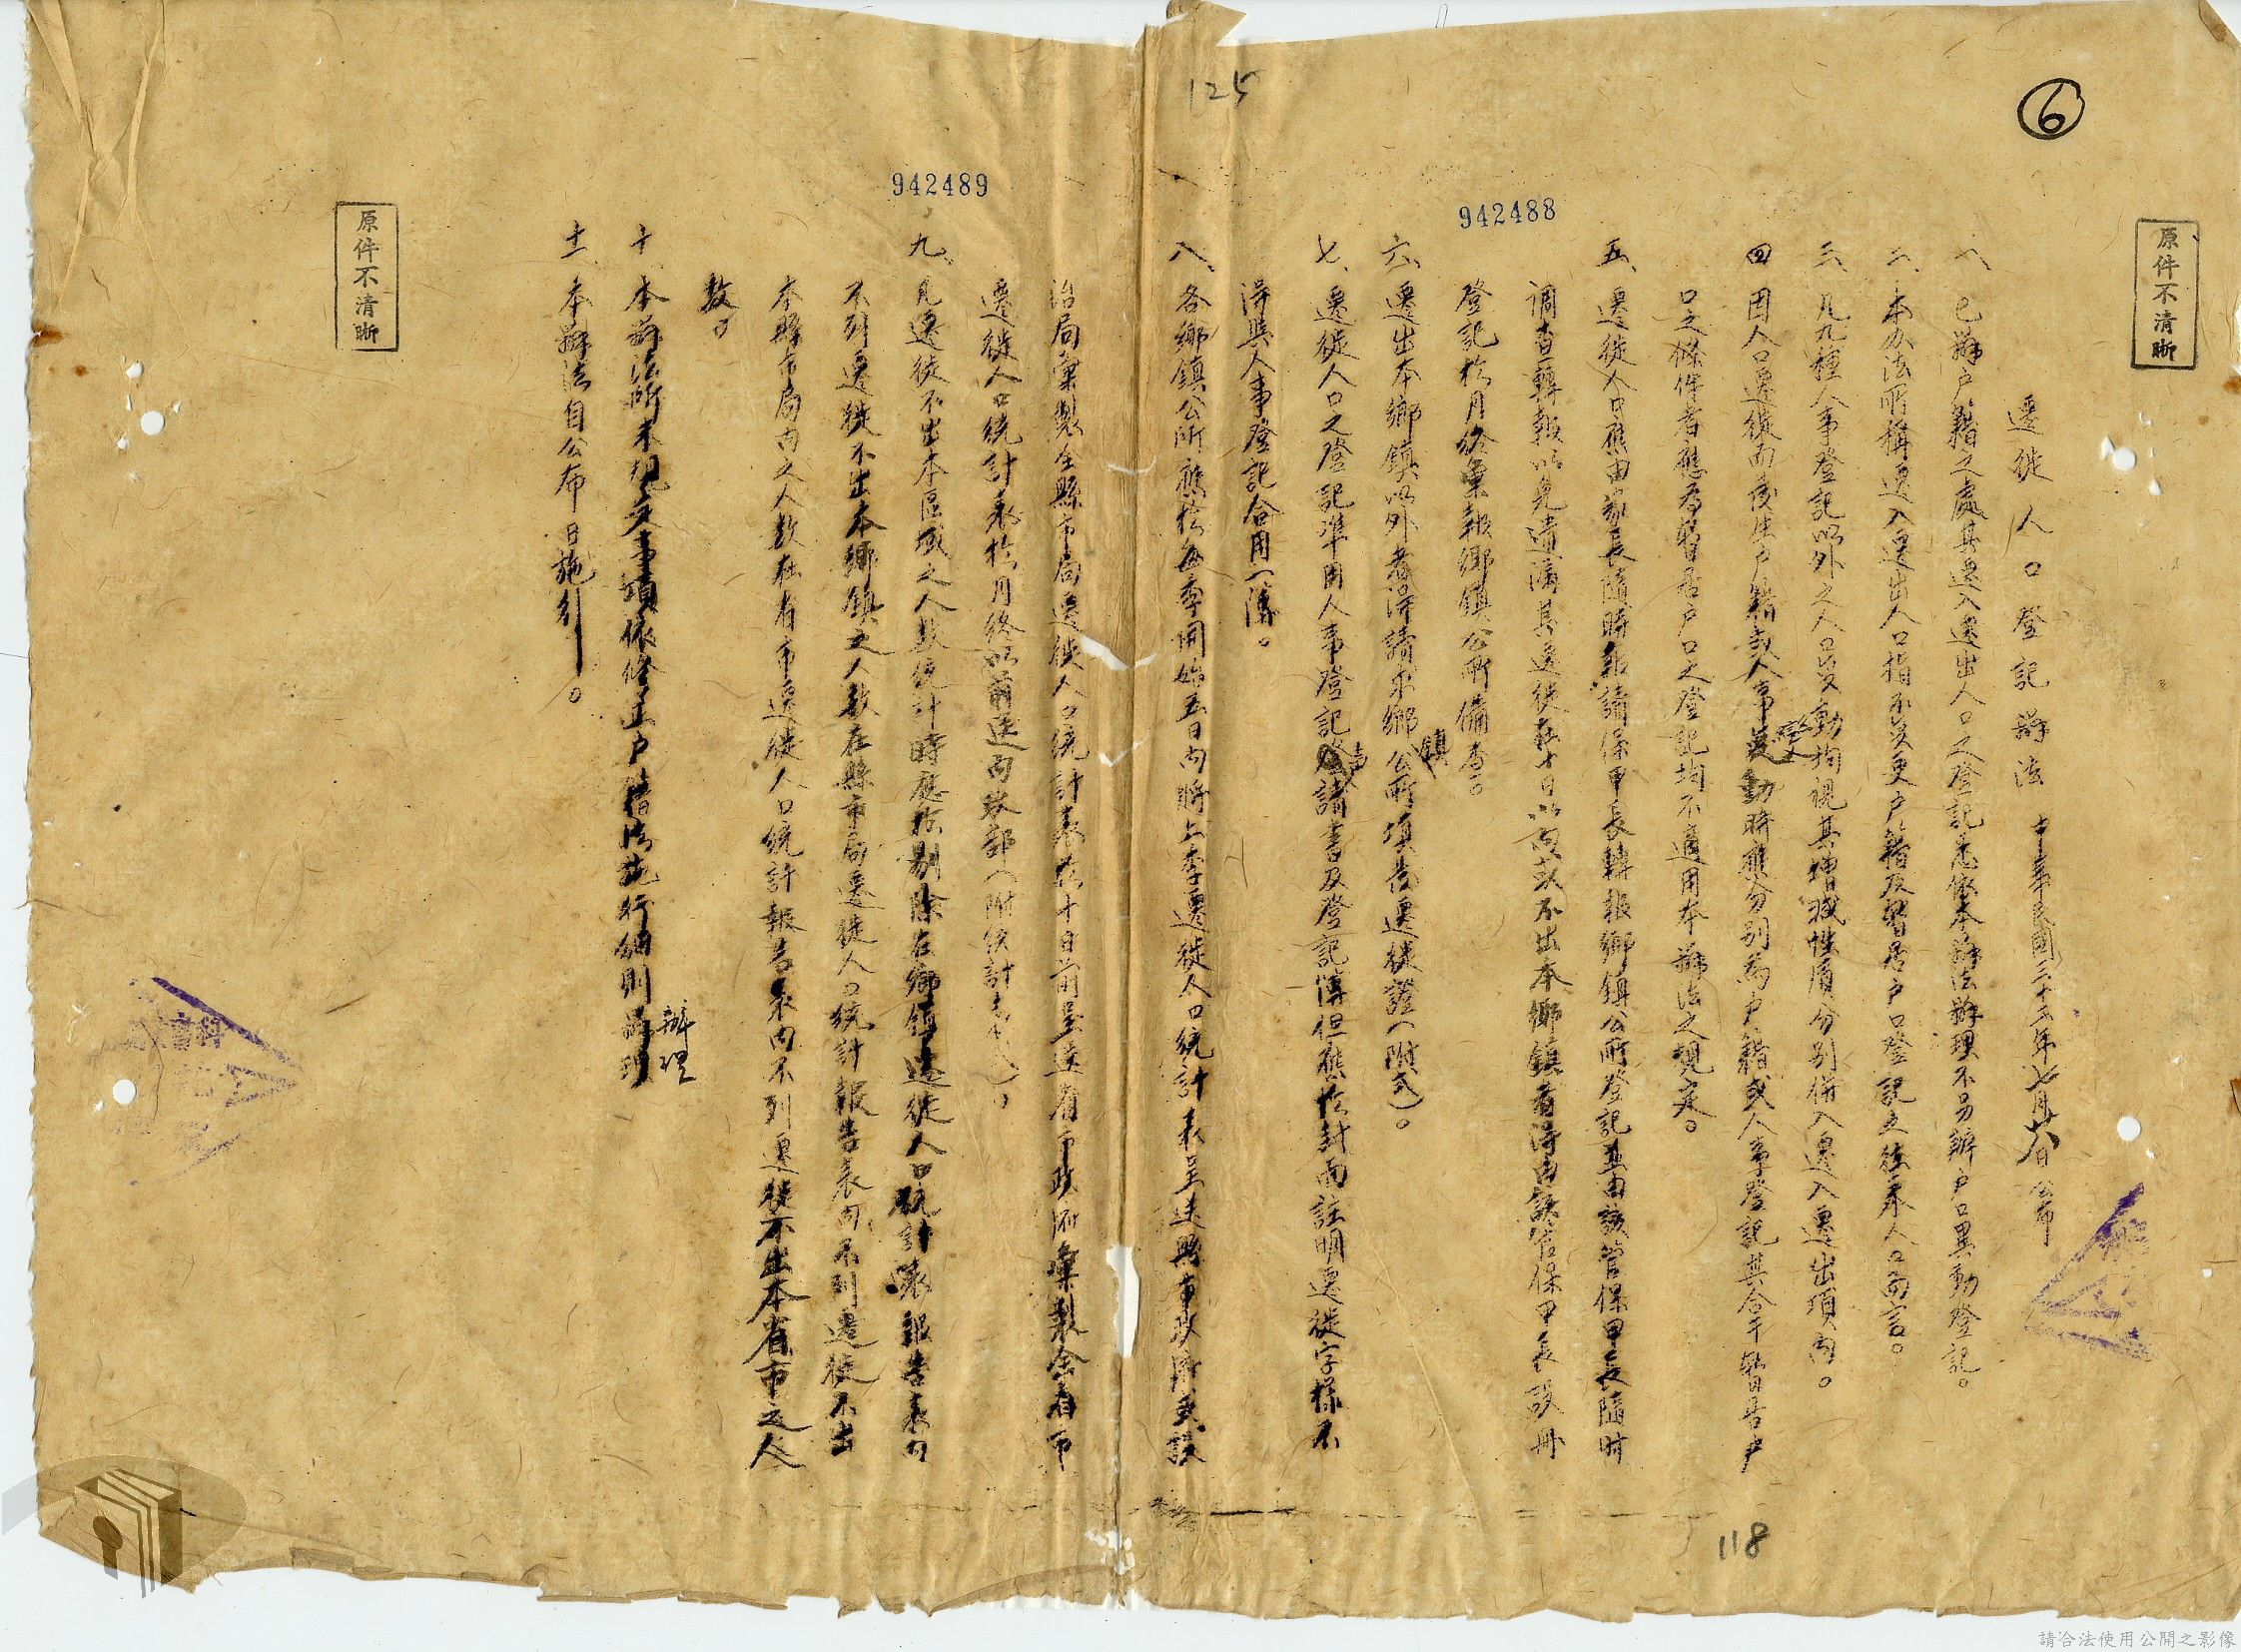 ⑥
125
942488
942489
原件不清晰
遷徙人口登記辦法 中華民國三十 年七月廿八日公布
一、已辦戶籍之處其遷入遷出人口之登記悉依本辦法辦理不另辦戶口異動登記。
二、本办法所稱遷入遷出人口指不變更戶籍及暫居戶口登記之往來人口而言。
三、凡九種人事登記以外之人口異動均視其增減性質分別併入遷入遷出項內。
四、因人口遷徙而發生戶籍或人事變動時應分別為戶籍或人事登記其合于暫居戶
口之條件者應為暫居戶口之登記均不適用本辦法之規定。
五、遷徙人口應由家長隨時報請保甲長轉報鄉鎮公所登記並由該管保甲長隨時
調查轉報以免遺漏其遷徙在十日以內或不出本鄉鎮者得由該管保甲長設冊
登記於月終彙報鄉鎮公所備查。
六、遷出本鄉鎮以外者得請求鄉鎮公所填發遷徙證(附式)。
七、遷徙人口之登記準用人事登記聲請書及登記簿但應於封面註明遷徙字樣不
得與人事登記合用一簿。
八、各鄉鎮公所應於每季開始五日內將上季遷徙人口統計表呈送縣市政府或設
治局彙製全縣市局遷徙人口統計表於十日前呈送省市政府彙製全省市
遷徙人口統計表於月終以前送內政部(附統計表式)。
九、凡遷徙不出本區域之人數統計時應予剔除在鄉鎮遷徙人口統計報告表內
不列遷徙不出本鄉鎮之人數在縣市局遷徙人口統計報告表內不列遷徙不出
本縣市局內之人數在省市遷徙人口統計報告表內不列遷徙不出本省市之人
數。
十、本辦法所未規定事項依修正戶籍法施行細則辦理
辦理
十一、本辦法自公布日施行。
原件不清晰
118
請合法使用公開之影像